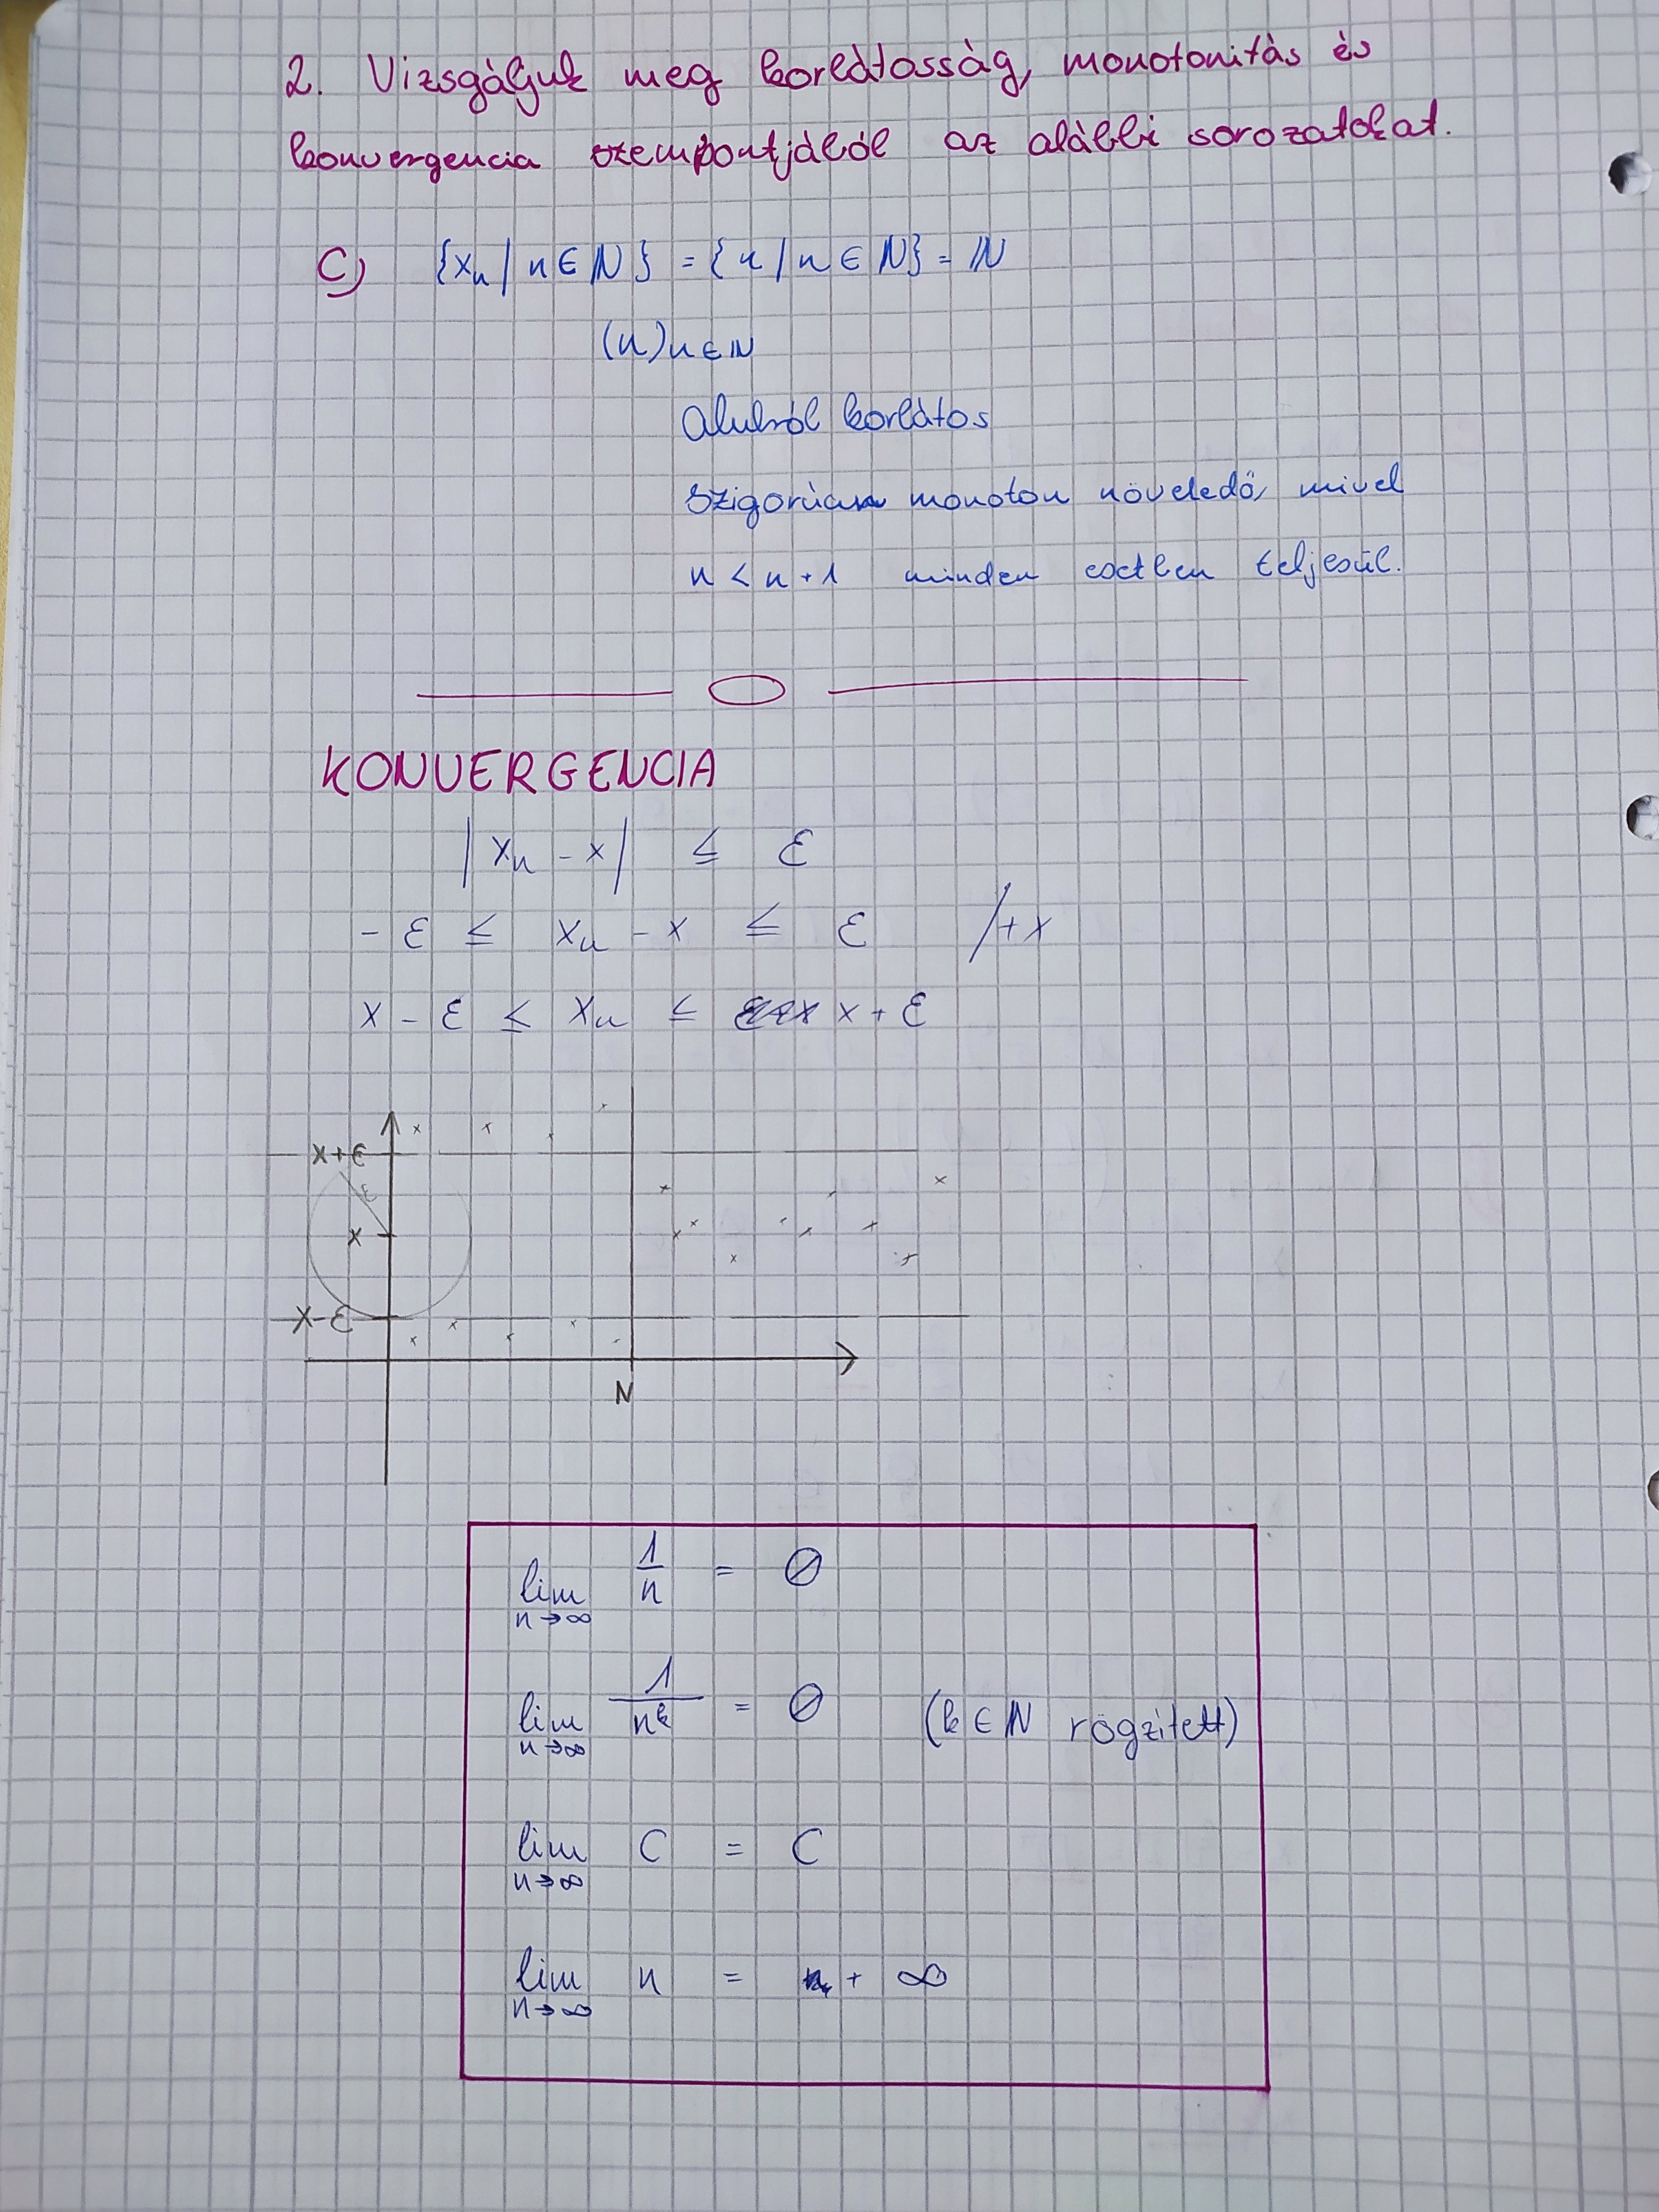 2. Vizsgáljuk meg korlátosság, monotonitás és
konvergencia szempontjából az alábbi sorozatokat.
C) {xₙ | n ∈ ℕ} = {n | n ∈ ℕ} = ℕ
(n)n∈ℕ
Alulról korlátos
Szigorúan monoton növekedő, mivel
n < n + 1 minden esetben teljesül.
KONVERGENCIA
|xₙ - x| ≤ ε
- ε ≤ xₙ - x ≤ ε /+x
x - ε ≤ xₙ ≤ x + ε
x+ε
ε
x
x-ε
N
lim n→∞ 1/n = 0
lim n→∞ 1/nᵏ = 0 (k ∈ ℕ rögzített)
lim n→∞ C = C
lim n→∞ n = + ∞